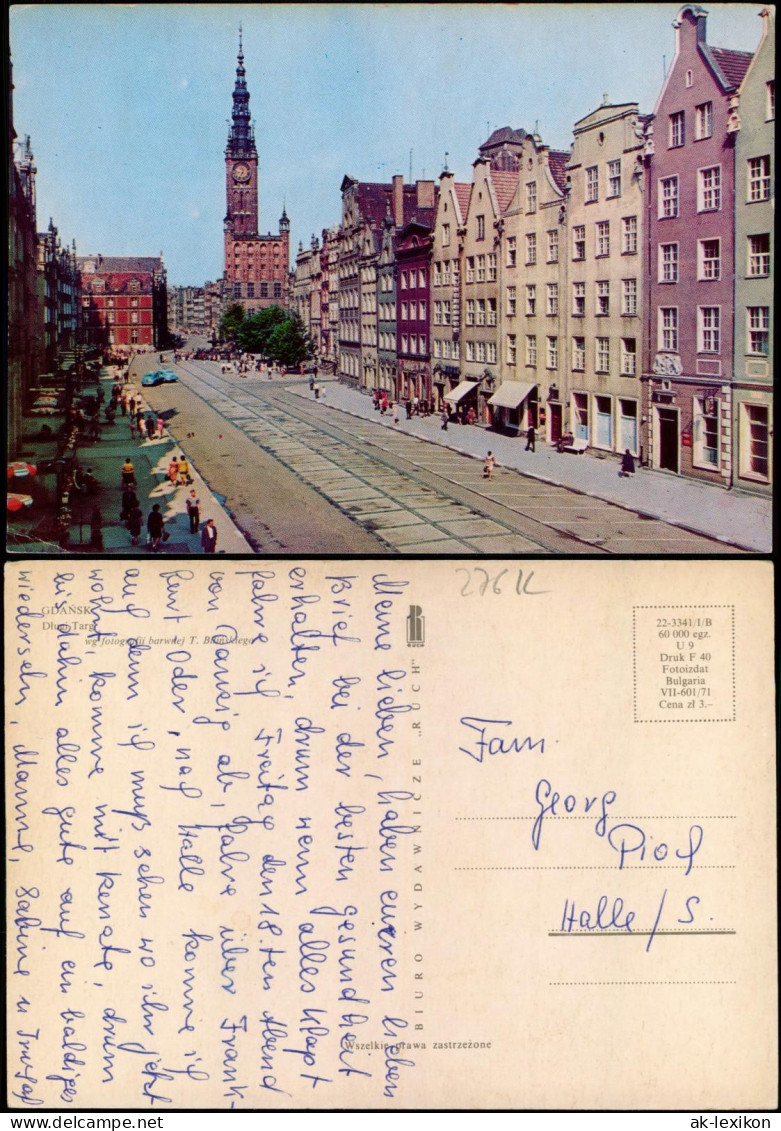 GDAŃSK
Długi Targ
wg fotografii barwnej T. Bilińskiego
Meine lieben, haben eueren lieben
Brief bei der besten gesundheit
erhalten, drum wenn alles klapt
fahre ich Freitag den 18.ten Abend
von Danzig ab, fahre über Frank-
furt Oder, nach Halle komme ich
auf denn ich muß sehen wo ihr jetzt
wohnt, komme mit Renate, drum
bis dahin alles gute auf ein baldiges
wiedersehn, Mamme, Sabine u
RUCH
BIURO WYDAWNICZE „RUCH"
Wszelkie prawa zastrzeżone
276 K
22-3341/I/B
60 000 egz.
U 9
Druk F 40
Fotoizdat
Bulgaria
VII-601/71
Cena zł 3.–
Fam.
Georg
Pioch
Halle/S.
delcampe.net
ak-lexikon